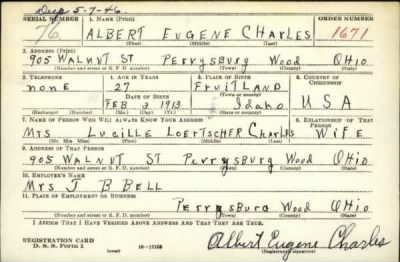 Dup 5-7-46.
SERIAL NUMBER 1. NAME (Print) ORDER NUMBER
76 ALBERT EUGENE CHARLES 1671
(First) (Middle) (Last)
2. ADDRESS (Print)
905 WALNUT ST PERRYSBURG WOOD OHIO
(Number and street or R. F. D. number) (Town) (County) (State)
3. TELEPHONE 4. AGE IN YEARS 5. PLACE OF BIRTH 6. COUNTRY OF CITIZENSHIP
none 27 FRUITLAND
DATE OF BIRTH (Town or county)
FEB 3 1913 Idaho USA
(Exchange) (No.) (Mo.) (Day) (Yr.) (State or country)
7. NAME OF PERSON WHO WILL ALWAYS KNOW YOUR ADDRESS 8. RELATIONSHIP OF THAT PERSON
Mrs LUCILLE LOERTSCHER CHARLES WIFE
(Mr. Mrs. Miss) (First) (Middle) (Last)
9. ADDRESS OF THAT PERSON
905 WALNUT ST PERRYSBURG WOOD OHIO
(Number and street or R. F. D. number) (Town) (County) (State)
10. EMPLOYER'S NAME
Mrs J B BELL
11. PLACE OF EMPLOYMENT OR BUSINESS
PERRYSBURG WOOD OHIO
(Number and street or R. F. D. number) (Town) (County) (State)
I AFFIRM THAT I HAVE VERIFIED ABOVE ANSWERS AND THAT THEY ARE TRUE.
REGISTRATION CARD
D. S. S. FORM 1 16-17105 Albert Eugene Charles
(Registrant's signature)